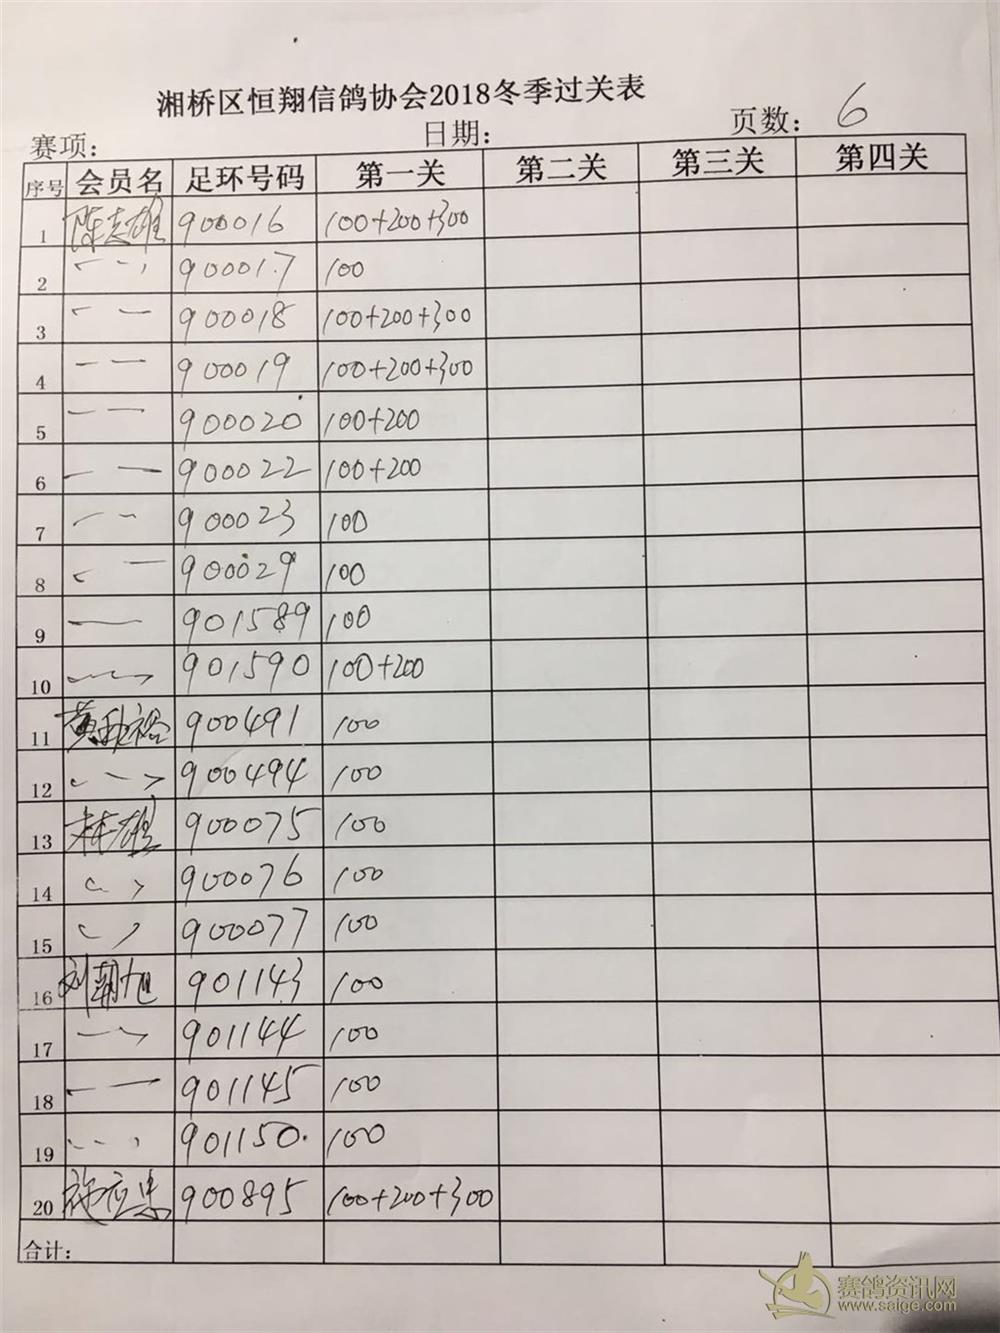 湘桥区恒翔信鸽协会2018冬季过关表
赛项: 日期: 页数: 6
序号 会员名 足环号码 第一关 第二关 第三关 第四关
1 陈克雄 900016 100+200+300
2 900017 100
3 900018 100+200+300
4 900019 100+200+300
5 900020 100+200
6 900022 100+200
7 900023 100
8 900029 100
9 901589 100
10 901590 100+200
11 900491 100
12 900494 100
13 900075 100
14 900076 100
15 900077 100
16 刘朝旭 901143 100
17 901144 100
18 901145 100
19 901150 100
20 施应忠 900895 100+200+300
合计:
赛鸽资讯网
www.saige.com